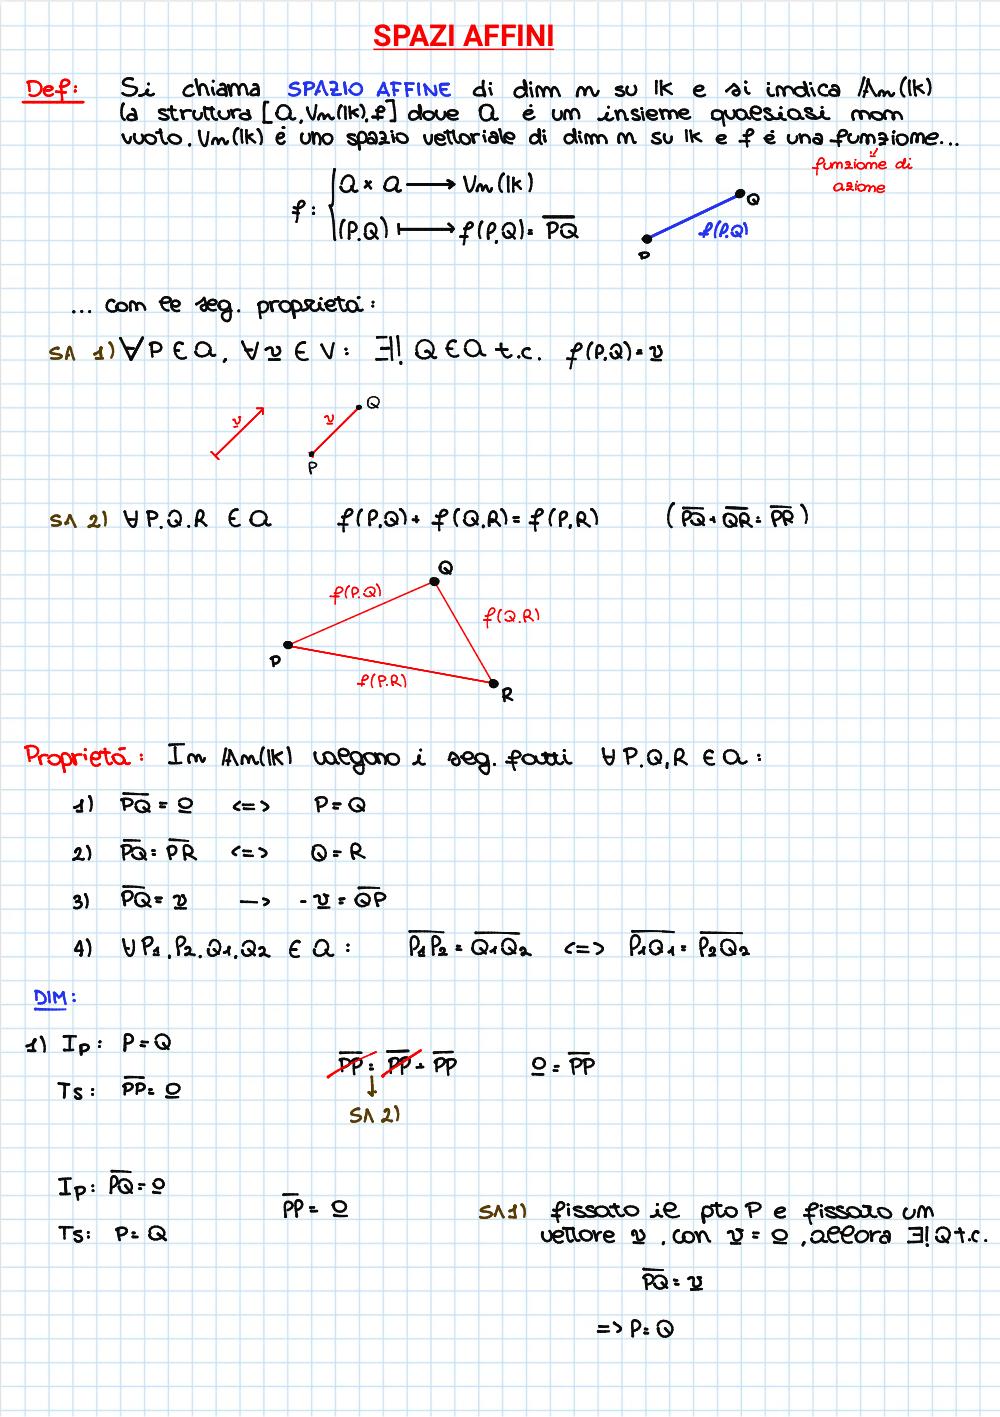 SPAZI AFFINI
Def: Si chiama SPAZIO AFFINE di dim n su lk e si indica /An(lk)
la struttura [A, Vn(lk), f] dove A é un insieme qualsiasi non
vuoto, Vn(lk) é uno spazio vettoriale di dim n su lk e f é una funzione...
funzione di
azione
f: { A × A ⟶ Vn(lk)
(P,Q) ⟼ f(P,Q) = P̅Q̅
P
Q
f(P,Q)
... con le seg. proprietá:
SA 1) ∀ P ∈ A, ∀ v̲ ∈ V: ∃! Q ∈ A t.c. f(P,Q) = v̲
v̲
v̲
Q
P
SA 2) ∀ P,Q,R ∈ A f(P,Q) + f(Q,R) = f(P,R) (P̅Q̅ + Q̅R̅ = P̅R̅)
Q
f(P,Q)
f(Q,R)
P
f(P,R)
R
Proprietá: In /An(lk) valgono i seg. fatti ∀ P,Q,R ∈ A:
1) P̅Q̅ = 0̲ <=> P = Q
2) P̅Q̅ = P̅R̅ <=> Q = R
3) P̅Q̅ = v̲ —> - v̲ = Q̅P̅
4) ∀ P₁,P₂,Q₁,Q₂ ∈ A: P̅₁P̅₂ = Q̅₁Q̅₂ <=> P̅₁Q̅₁ = P̅₂Q̅₂
DIM:
1) Ip: P = Q
P̅P̅ = P̅P̅ + P̅P̅ 0̲ = P̅P̅
Ts: P̅P̅ = 0̲
SA 2)
Ip: P̅Q̅ = 0̲
P̅P̅ = 0̲
Ts: P = Q
SA1) fissato il pto P e fissato un
vettore v̲, con v̲ = 0̲, allora ∃! Q t.c.
P̅Q̅ = v̲
=> P = Q